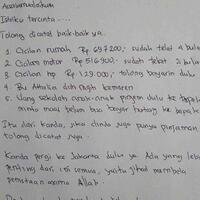 Assalamualaikum
Istriku tercinta....
Tolong dicatat baik-baik ya.
1. Cicilan rumah Rp 697200,- sudah telat 4 bula
2. Cicilan motor Rp 516900,- sudah telat 2 bula
3. Cicilan hp Rp 129.000,- tolong bayarin dulu
4. Bu Attaka dah nagih kemaren
5. Uang sekolah anak-anak pinjem dulu ke
minta maaf belum bisa bayar hutang ke bapak
Itu dari kanda, jika dinda juga punya pinjaman
tolong dicatat juga.
Kanda pergi ke Jakarta dulu ya. Ada yang lebih
penting dari isi semua, yaitu jihad membela
penistaan agama Allah.